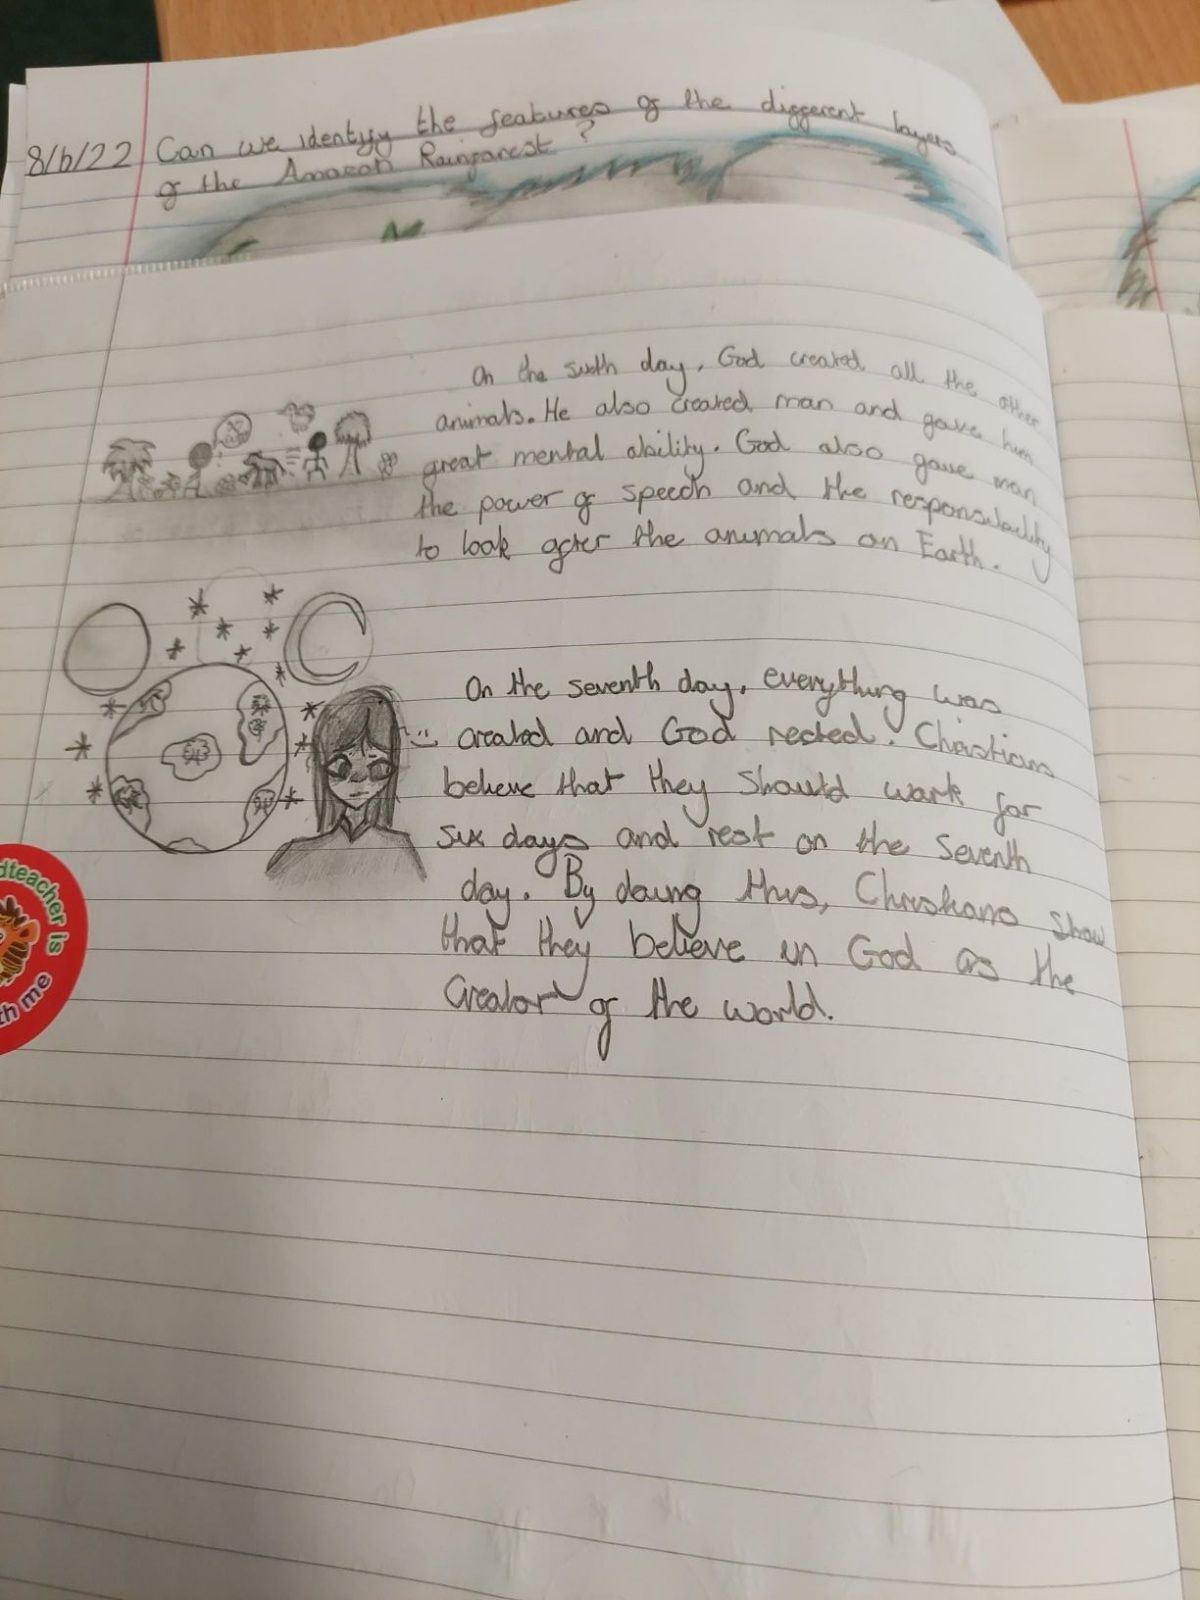 8/6/22 Can we identify the features of the different layers
of the Amazon Rainforest?
On the sixth day, God created all the other
animals. He also created man and gave him
great mental ability. God also gave man
the power of speech and the responsability
to look after the animals on Earth.
On the seventh day, everything was
created and God rected. Christians
believe that they should work for
six days and rest on the seventh
day. By doing this, Christians show
that they believe in God as the
Creator of the world.
dteacher is
th me